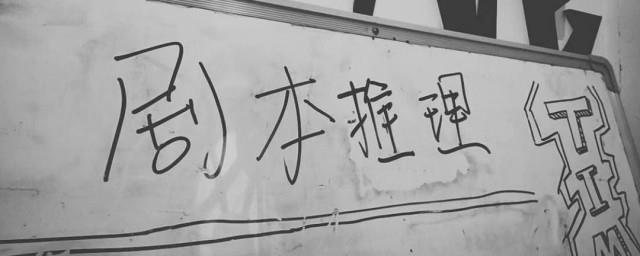 剧本推理
TIM